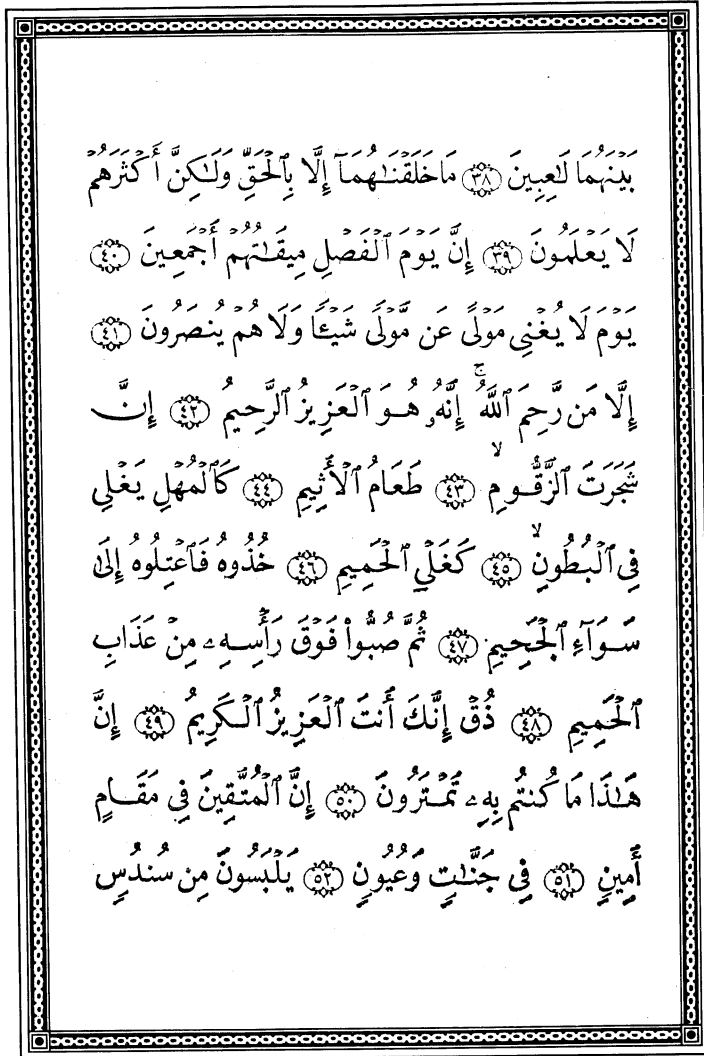 بَيْنَهُمَا لَٰعِبِينَ ﴿٣٨﴾ مَا خَلَقْنَٰهُمَآ إِلَّا بِٱلْحَقِّ وَلَٰكِنَّ أَكْثَرَهُمْ
لَا يَعْلَمُونَ ﴿٣٩﴾ إِنَّ يَوْمَ ٱلْفَصْلِ مِيقَٰتُهُمْ أَجْمَعِينَ ﴿٤٠﴾
يَوْمَ لَا يُغْنِى مَوْلًى عَن مَّوْلًى شَيْـًٔا وَلَا هُمْ يُنصَرُونَ ﴿٤١﴾
إِلَّا مَن رَّحِمَ ٱللَّهُ ۚ إِنَّهُۥ هُوَ ٱلْعَزِيزُ ٱلرَّحِيمُ ﴿٤٢﴾ إِنَّ
شَجَرَتَ ٱلزَّقُّومِ ۙ ﴿٤٣﴾ طَعَامُ ٱلْأَثِيمِ ﴿٤٤﴾ كَٱلْمُهْلِ يَغْلِى
فِى ٱلْبُطُونِ ۙ ﴿٤٥﴾ كَغَلْىِ ٱلْحَمِيمِ ﴿٤٦﴾ خُذُوهُ فَٱعْتِلُوهُ إِلَىٰ
سَوَآءِ ٱلْجَحِيمِ ﴿٤٧﴾ ثُمَّ صُبُّوا۟ فَوْقَ رَأْسِهِۦ مِنْ عَذَابِ
ٱلْحَمِيمِ ﴿٤٨﴾ ذُقْ إِنَّكَ أَنتَ ٱلْعَزِيزُ ٱلْكَرِيمُ ﴿٤٩﴾ إِنَّ
هَٰذَا مَا كُنتُم بِهِۦ تَمْتَرُونَ ﴿٥٠﴾ إِنَّ ٱلْمُتَّقِينَ فِى مَقَامٍ
أَمِينٍ ﴿٥١﴾ فِى جَنَّٰتٍ وَعُيُونٍ ﴿٥٢﴾ يَلْبَسُونَ مِن سُندُسٍ